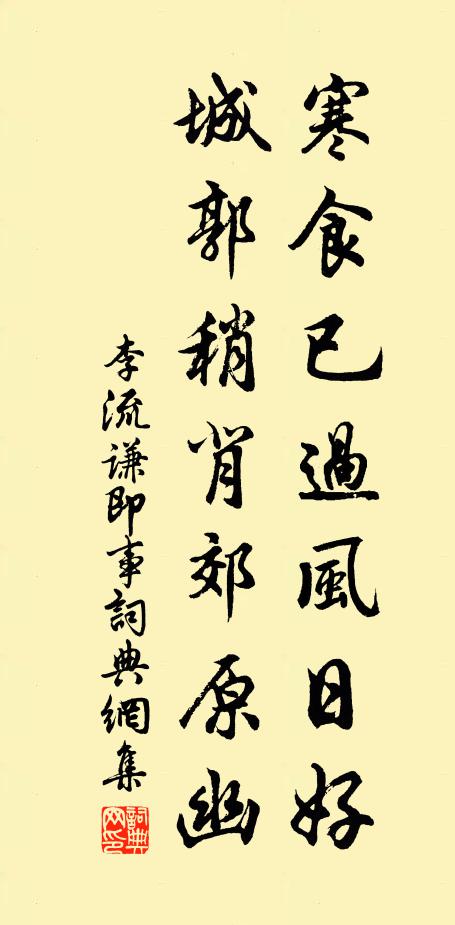 寒食已過風日好
城郭稍背郊原幽
李流謙即事詞典網集
詞典網印